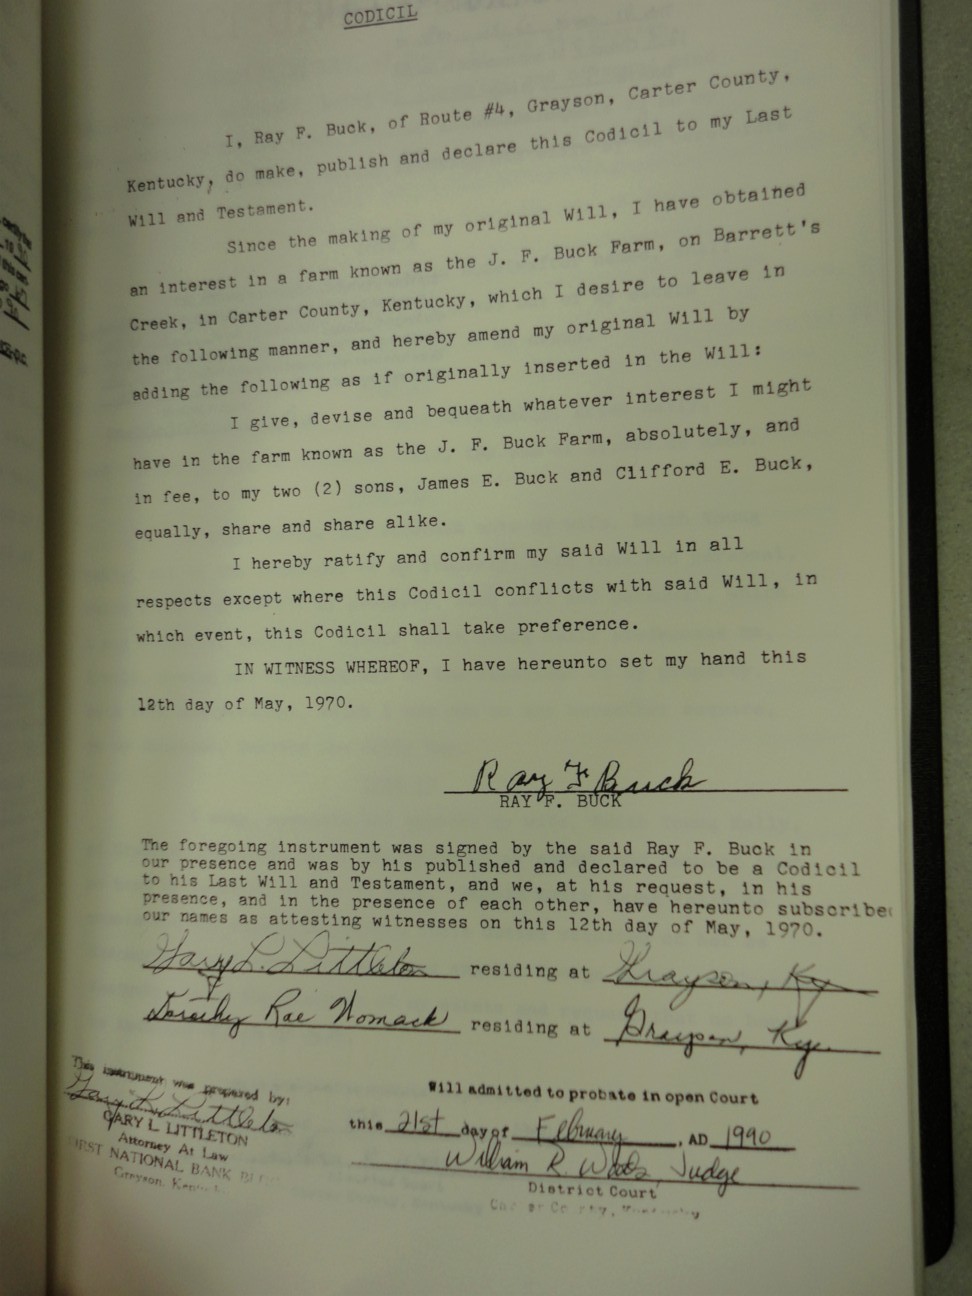 CODICIL
I, Ray F. Buck, of Route #4, Grayson, Carter County,
Kentucky, do make, publish and declare this Codicil to my Last
Will and Testament.
Since the making of my original Will, I have obtained
an interest in a farm known as the J. F. Buck Farm, on Barrett's
Creek, in Carter County, Kentucky, which I desire to leave in
the following manner, and hereby amend my original Will by
adding the following as if originally inserted in the Will:
I give, devise and bequeath whatever interest I might
have in the farm known as the J. F. Buck Farm, absolutely, and
in fee, to my two (2) sons, James E. Buck and Clifford E. Buck,
equally, share and share alike.
I hereby ratify and confirm my said Will in all
respects except where this Codicil conflicts with said Will, in
which event, this Codicil shall take preference.
IN WITNESS WHEREOF, I have hereunto set my hand this
12th day of May, 1970.
Ray F Buck
RAY F. BUCK
The foregoing instrument was signed by the said Ray F. Buck in
our presence and was by his published and declared to be a Codicil
to his Last Will and Testament, and we, at his request, in his
presence, and in the presence of each other, have hereunto subscribe
our names as attesting witnesses on this 12th day of May, 1970.
Gary L. Littleton residing at Grayson, Ky
Dorothy Rae Womack residing at Grayson, Ky.
This instrument was prepared by:
Gary L. Littleton
GARY L LITTLETON
Attorney At Law
NATIONAL BANK
Grayson,
Will admitted to probate in open Court
this 21st day of February, AD 1990
William R. Woods, Judge
District Court
County, Kentucky